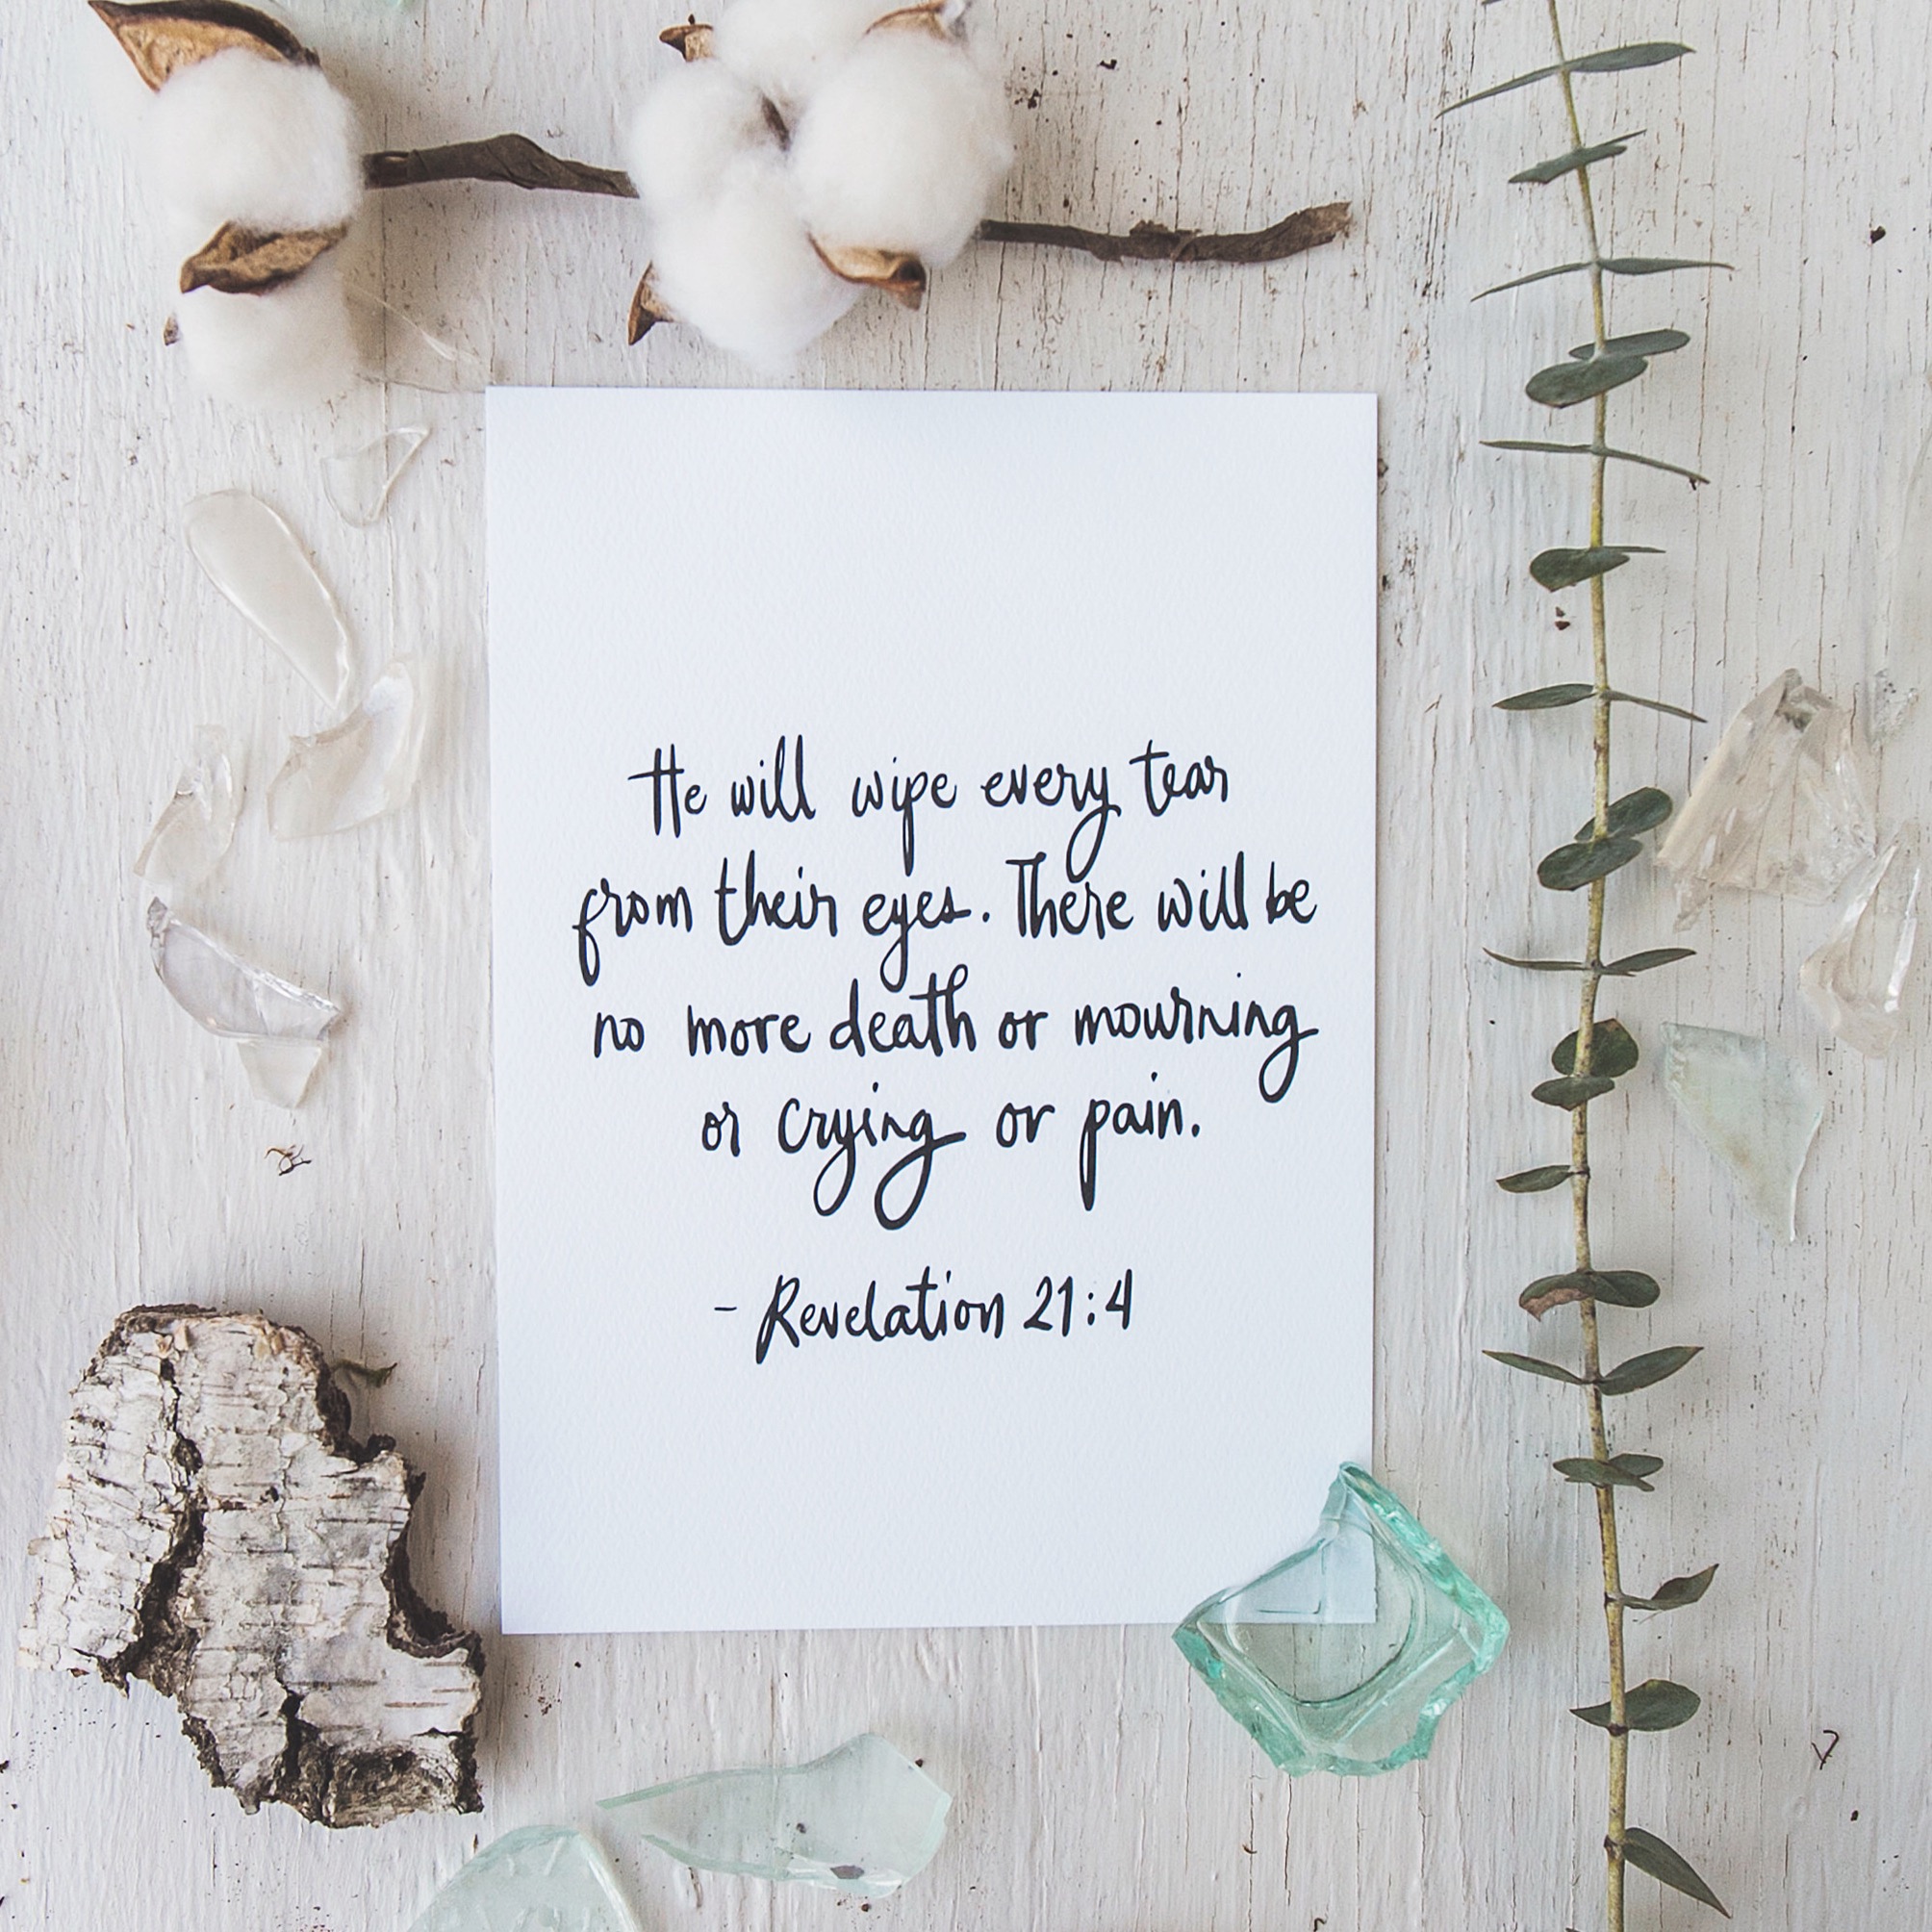 He will wipe every tear
from their eyes. There will be
no more death or mourning
or crying or pain.
- Revelation 21:4